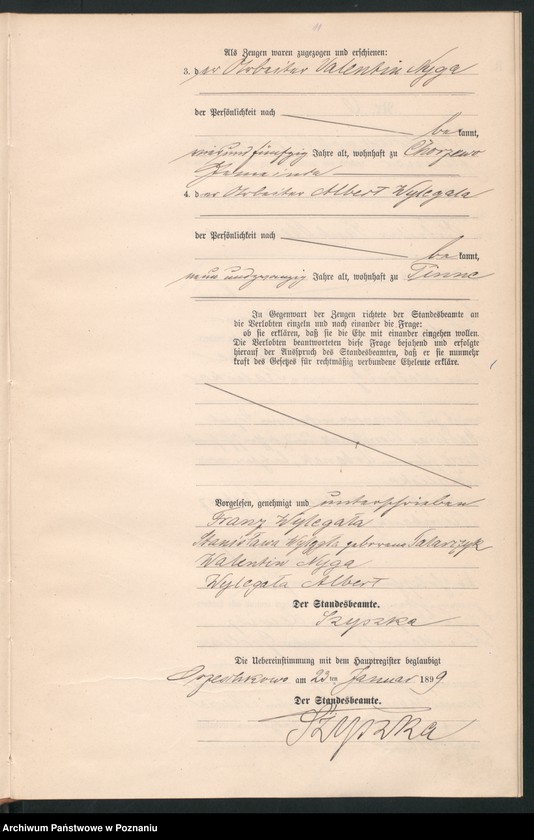 Als Zeugen waren zugezogen und erschienen:
3. der Arbeiter Valentin Nyga
der Persönlichkeit nach
bekannt,
vierundfünfzig Jahre alt, wohnhaft zu Chorzewo
Gemeinde
4. der Arbeiter Albert Wylegala
der Persönlichkeit nach
bekannt,
neunundzwanzig Jahre alt, wohnhaft zu Pinne
In Gegenwart der Zeugen richtete der Standesbeamte an
die Verlobten einzeln und nach einander die Frage:
ob sie erklären, daß sie die Ehe mit einander eingehen wollen.
Die Verlobten beantworteten diese Frage bejahend und erfolgte
hierauf der Ausspruch des Standesbeamten, daß er sie nunmehr
kraft des Gesetzes für rechtmäßig verbundene Eheleute erkläre.
Vorgelesen, genehmigt und unterschrieben
Franz Wylegała
Stanisława Wylegała geborene Tatarczyk
Walentin Nyga
Wylegała Albert
Der Standesbeamte.
Szyszka
Die Uebereinstimmung mit dem Hauptregister beglaubigt
am 22ten Januar 1899
Der Standesbeamte.
Szyszka
Archiwum Państwowe w Poznaniu